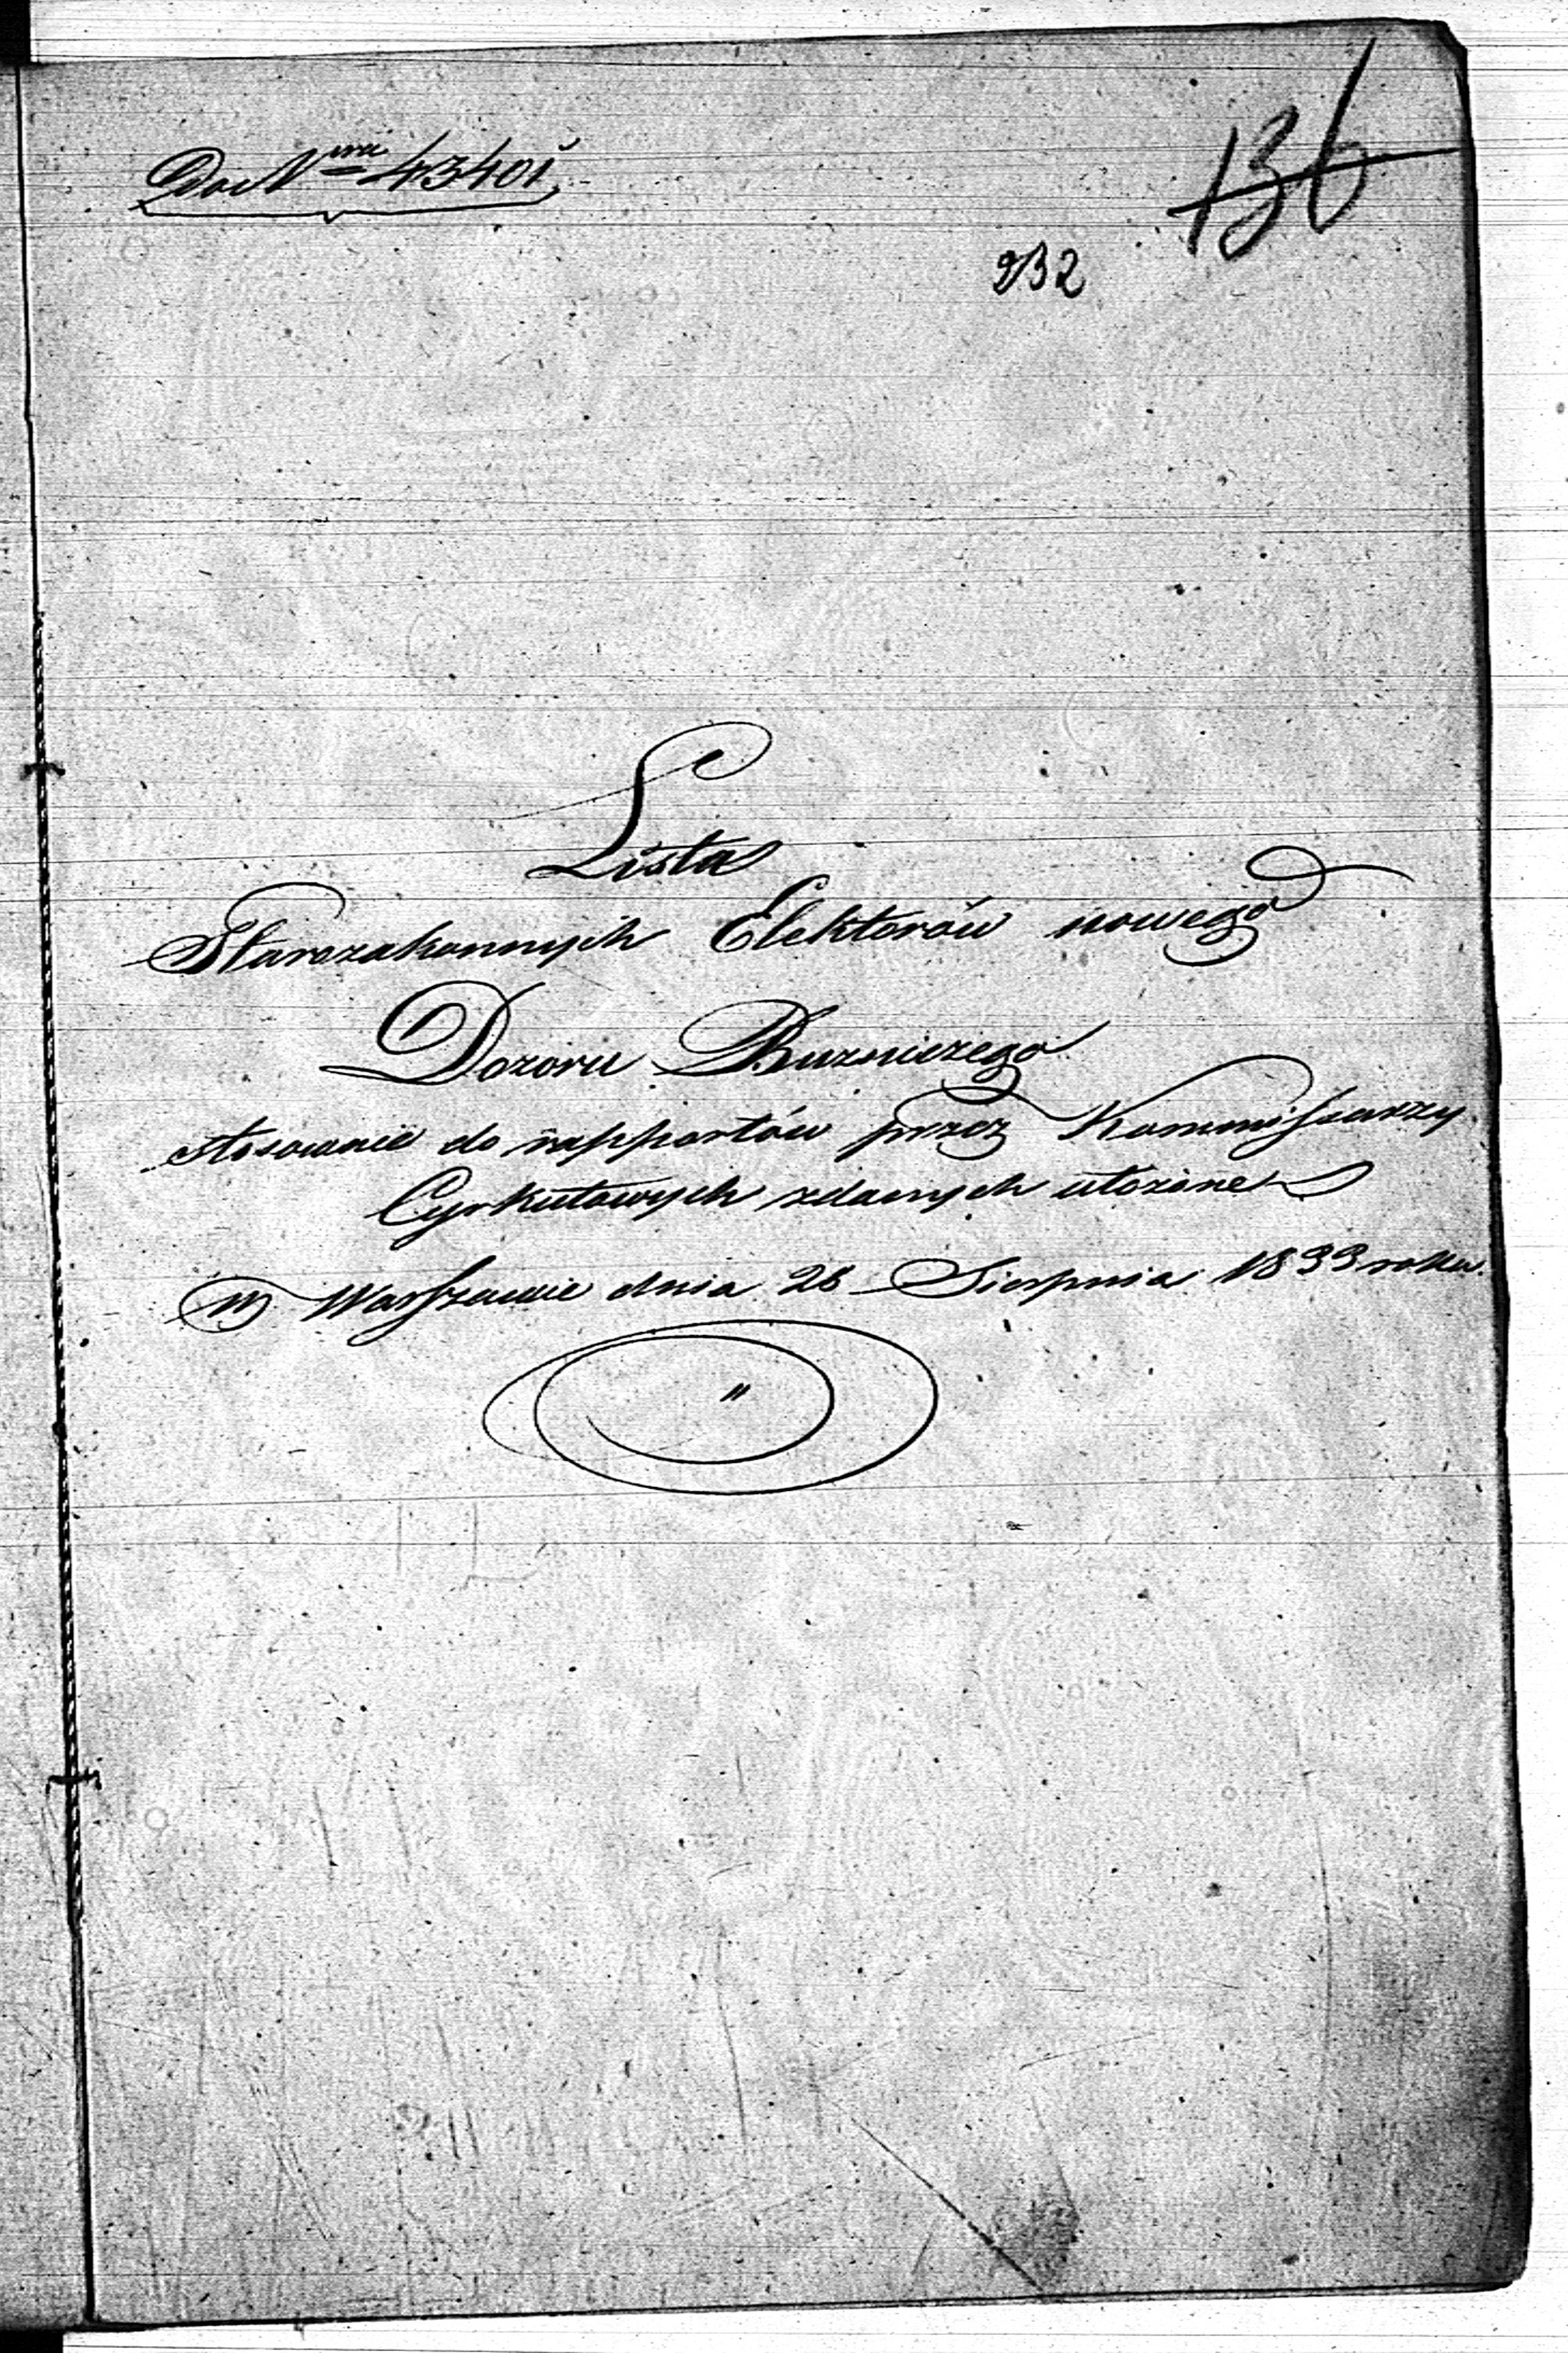 Do Nru 43401
136
232
Lista
Starozakonnych Elektorów nowego
Dozoru Buzniczego
stosownie do rapportów przez Kommissarzy
Cyrkułowych zdanych ułożone
w Warszawie dnia 28 Sierpnia 1833 roku.